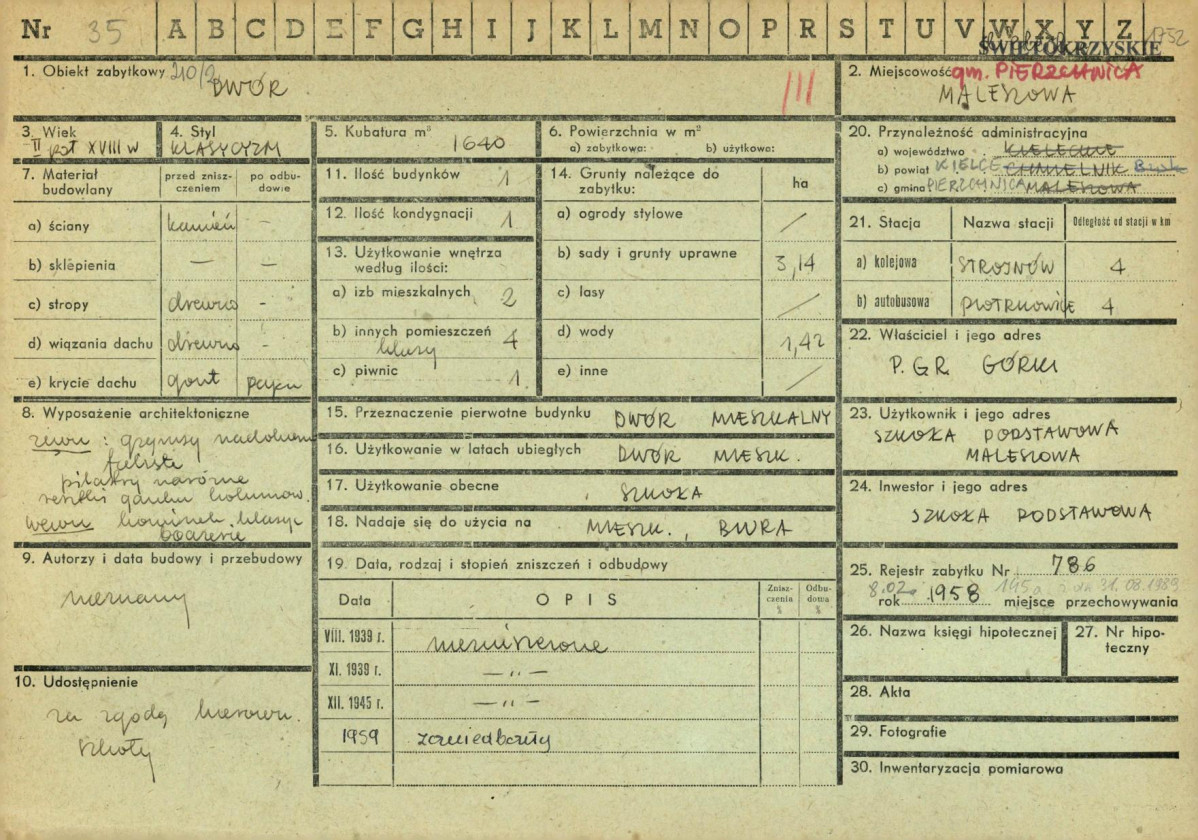 Nr 35 A B C D E F G H I J K L M N O P R S T U V W X Y Z 1752
ŚWIĘTOKRZYSKIE
1. Obiekt zabytkowy 210/2
DWÓR
III
2. Miejscowość gm. PIERZCHNICA
MALESZOWA
3. Wiek
II poł XVIII w
4. Styl
KLASYCYZM
5. Kubatura m³
1640
6. Powierzchnia w m²
a) zabytkowa: b) użytkowa:
20. Przynależność administracyjna
a) województwo KIELECKIE
b) powiat KIELCE CHMIELNIK Busko
c) gmina PIERZCHNICA MALESZOWA
7. Materiał budowlany
przed zniszczeniem
po odbudowie
a) ściany kamień
b) sklepienia — —
c) stropy drewno -
d) wiązania dachu drewno -
e) krycie dachu gont papa
11. Ilość budynków 1
12. Ilość kondygnacji 1
13. Użytkowanie wnętrza
według ilości:
a) izb mieszkalnych 2
b) innych pomieszczeń 4
klasy
c) piwnic 1.
14. Grunty należące do
zabytku:
ha
a) ogrody stylowe /
b) sady i grunty uprawne 3,14
c) lasy /
d) wody 1,42
e) inne /
21. Stacja Nazwa stacji Odległość od stacji w km
a) kolejowa STROJNÓW 4
b) autobusowa PIOTRKOWICE 4
22. Właściciel i jego adres
P.G.R. GÓRKI
8. Wyposażenie architektoniczne
zewn: gzymsy nadokienne
pilastry narożne
resztki ganku kolumnow.
wewn kominek, klasyc
15. Przeznaczenie pierwotne budynku DWÓR MIESZKALNY
16. Użytkowanie w latach ubiegłych DWÓR MIESZK.
17. Użytkowanie obecne SZKOŁA
18. Nadaje się do użycia na MIESZK., BIURA
23. Użytkownik i jego adres
SZKOŁA PODSTAWOWA
MALESZOWA
24. Inwestor i jego adres
SZKOŁA PODSTAWOWA
9. Autorzy i data budowy i przebudowy
nieznany
10. Udostępnienie
za zgodą kierown.
szkoły
19. Data, rodzaj i stopień zniszczeń i odbudowy
Data OPIS Zniszczenia % Odbudowa %
VIII. 1939 r. niezniszczone
XI. 1939 r. — „ —
XII. 1945 r. — „ —
1959 zaniedbany
25. Rejestr zabytku Nr 786
8.02. 145a z dn 31.08.1989
rok 1958 miejsce przechowywania
26. Nazwa księgi hipotecznej
27. Nr hipoteczny
28. Akta
29. Fotografie
30. Inwentaryzacja pomiarowa